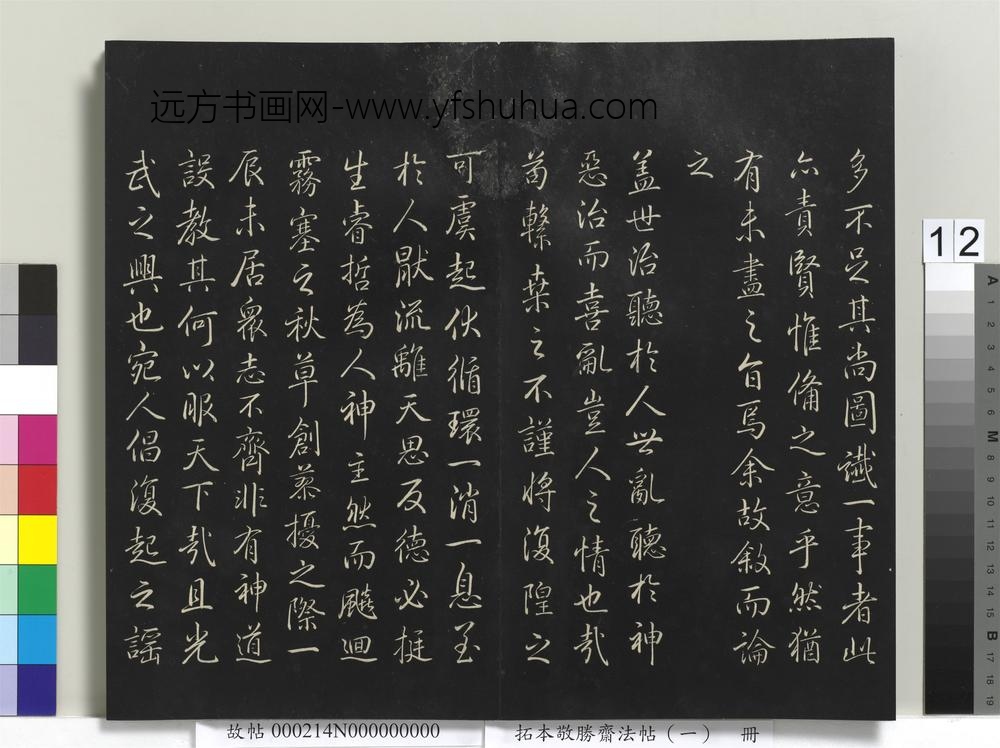 远方书画网-www.yfshuhua.com
多不足其尚圖讖一事者此
亦責賢惟備之意乎然猶
有未盡之旨焉余故叙而論
之
盖世治聽於人世亂聽於神
惡治而喜亂豈人之情也哉
苗繁葉之不謹將復隍之
可虞起伏循環一消一息至
於人厭流離天思反德必挺
生睿哲為人神主然而飈迴
霧塞之秋草創蓁擾之際一
辰未居眾志不齊非有神道
設教其何以服天下哉且光
武之興也宛人倡復起之謡
12
A 1 2 3 4 5 6 M 8 9 10 11 12 13 14 15 B 17 18 19
故帖 000214N000000000
拓本敬勝齋法帖（一） 冊